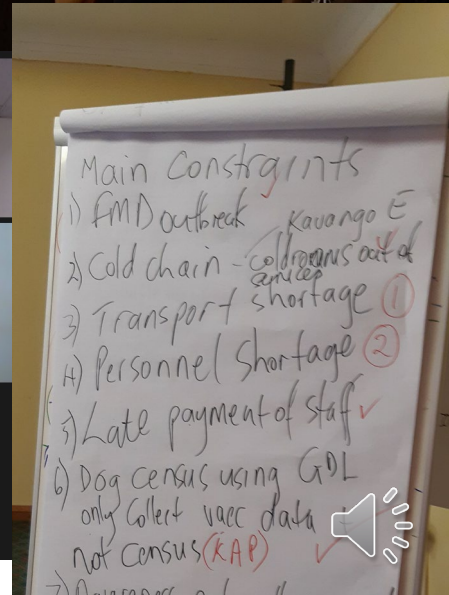 Main Constraints
1) FMD outbreak Kavango E
2) Cold chain - Coldrooms out of
services
3) Transport shortage 1
4) Personnel Shortage 2
5) Late payment of staff
6) Dog census using GDL
only Collect vacc data
not census (KAP)
7)